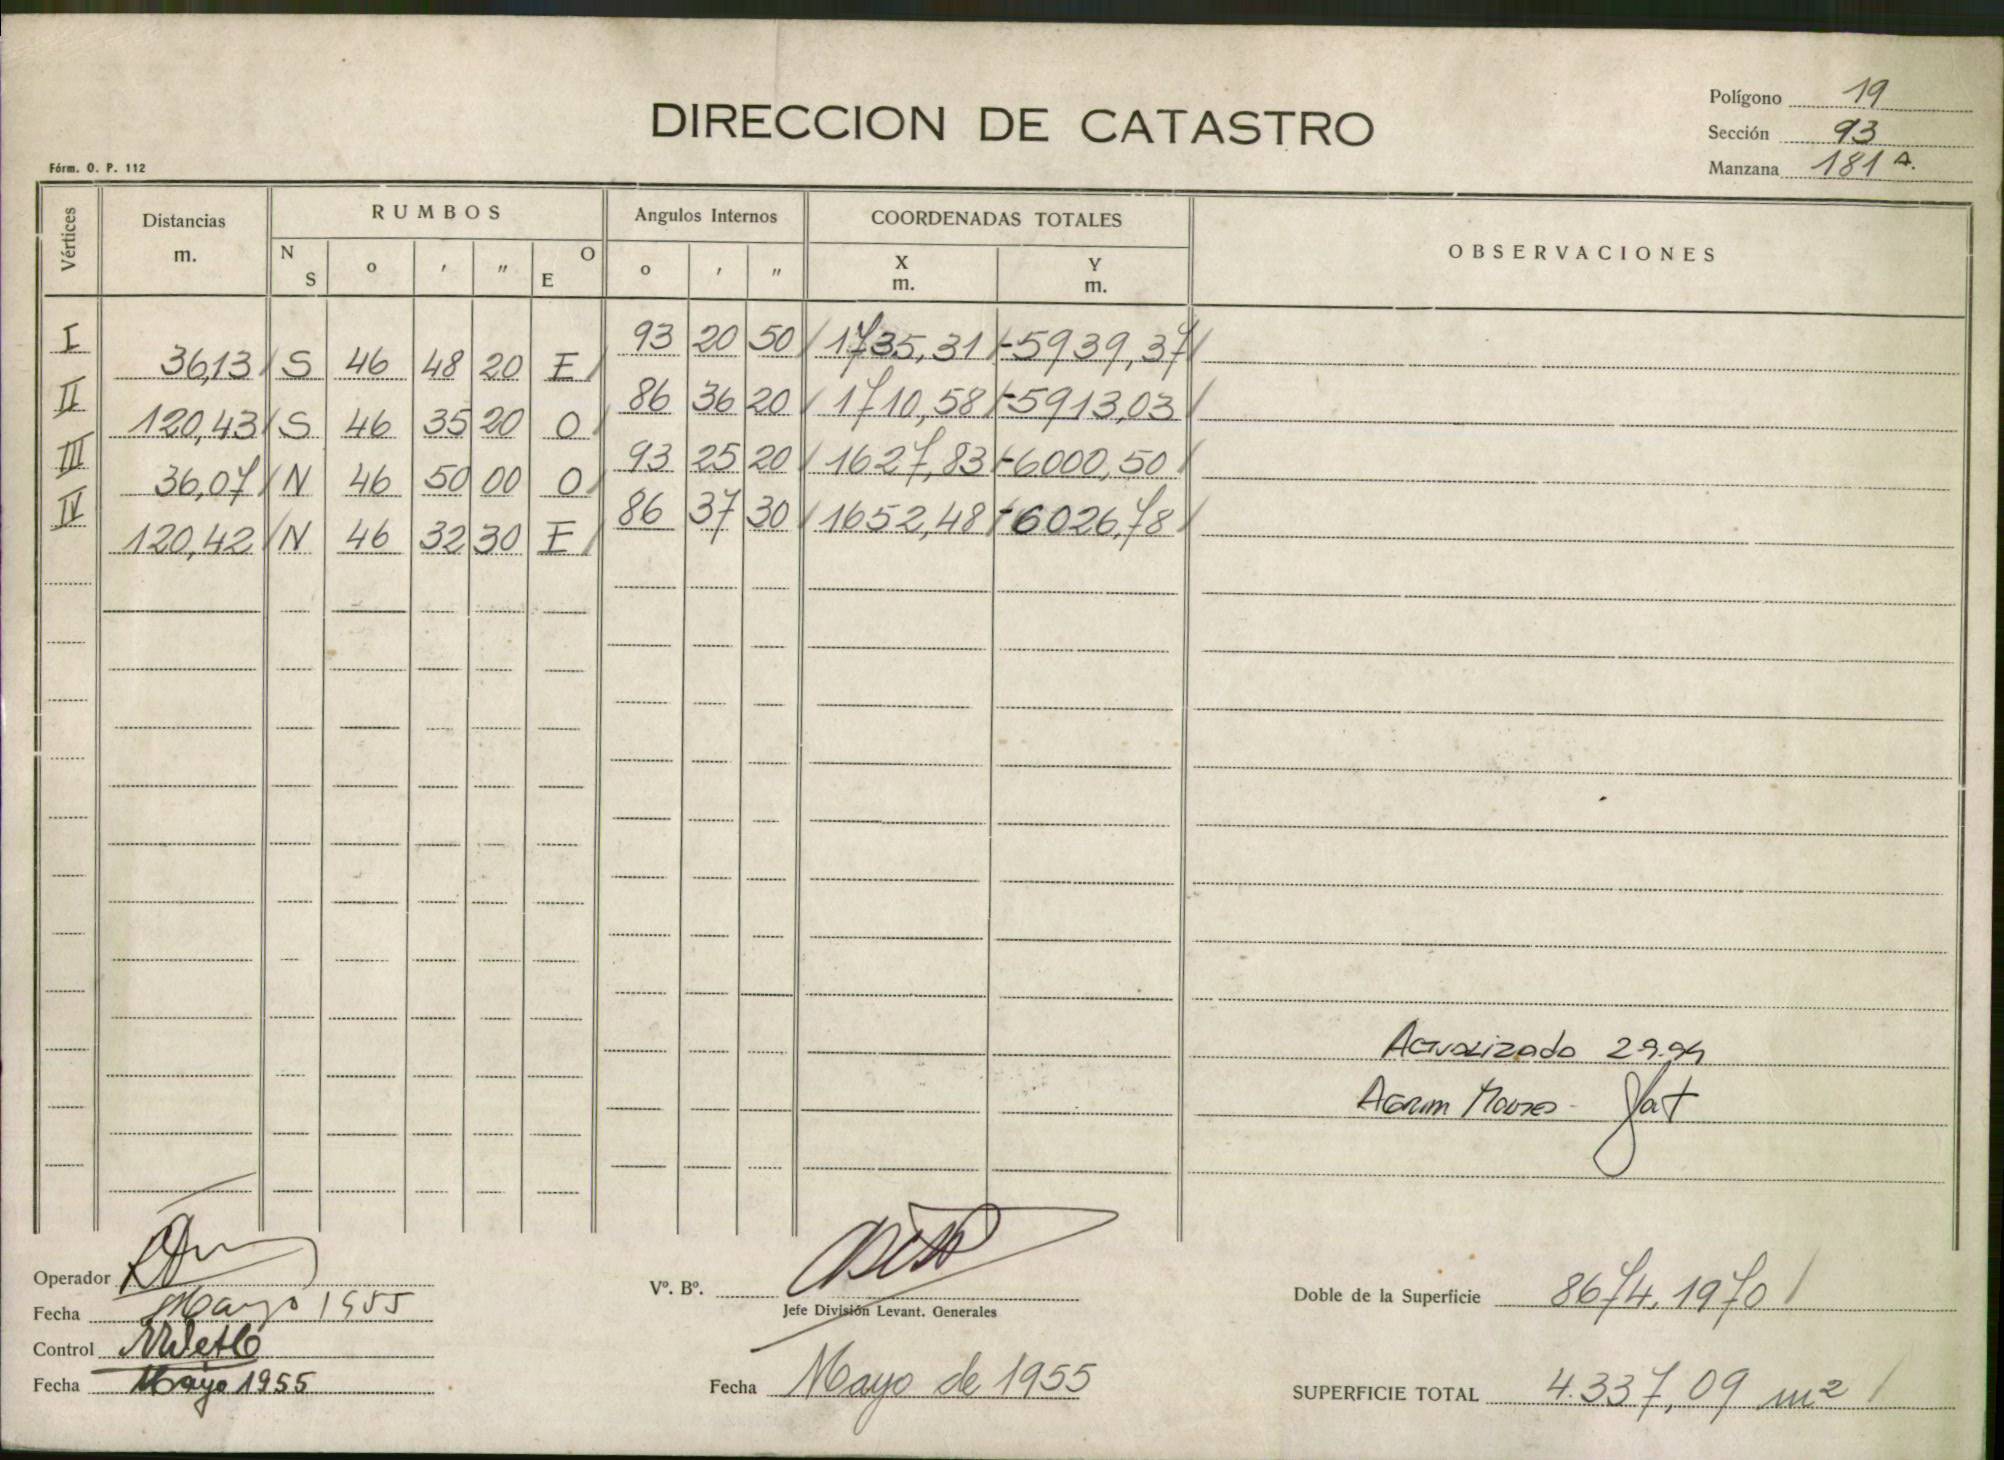 Polígono 19
DIRECCION DE CATASTRO
Sección 93
Fórm. O. P. 112
Manzana 181 A.
Vértices Distancias m. RUMBOS Angulos Internos COORDENADAS TOTALES OBSERVACIONES
N S o ′ ″ E O o ′ ″ X m. Y m.
I 93 20 50 1735,31 -5939,37
36,13 S 46 48 20 E
II 86 36 20 1710,58 -5913,03
120,43 S 46 35 20 O
III 93 25 20 1627,83 -6000,50
36,07 N 46 50 00 O
IV 86 37 30 1652,48 -6026,78
120,42 N 46 32 30 E
Actualizado 29.94
Agrim
Operador
Fecha Mayo 1955
Control
Fecha Mayo 1955
Vº. Bº.
Jefe División Levant. Generales
Fecha Mayo de 1955
Doble de la Superficie 8674.1970
SUPERFICIE TOTAL 4.337,09 m2